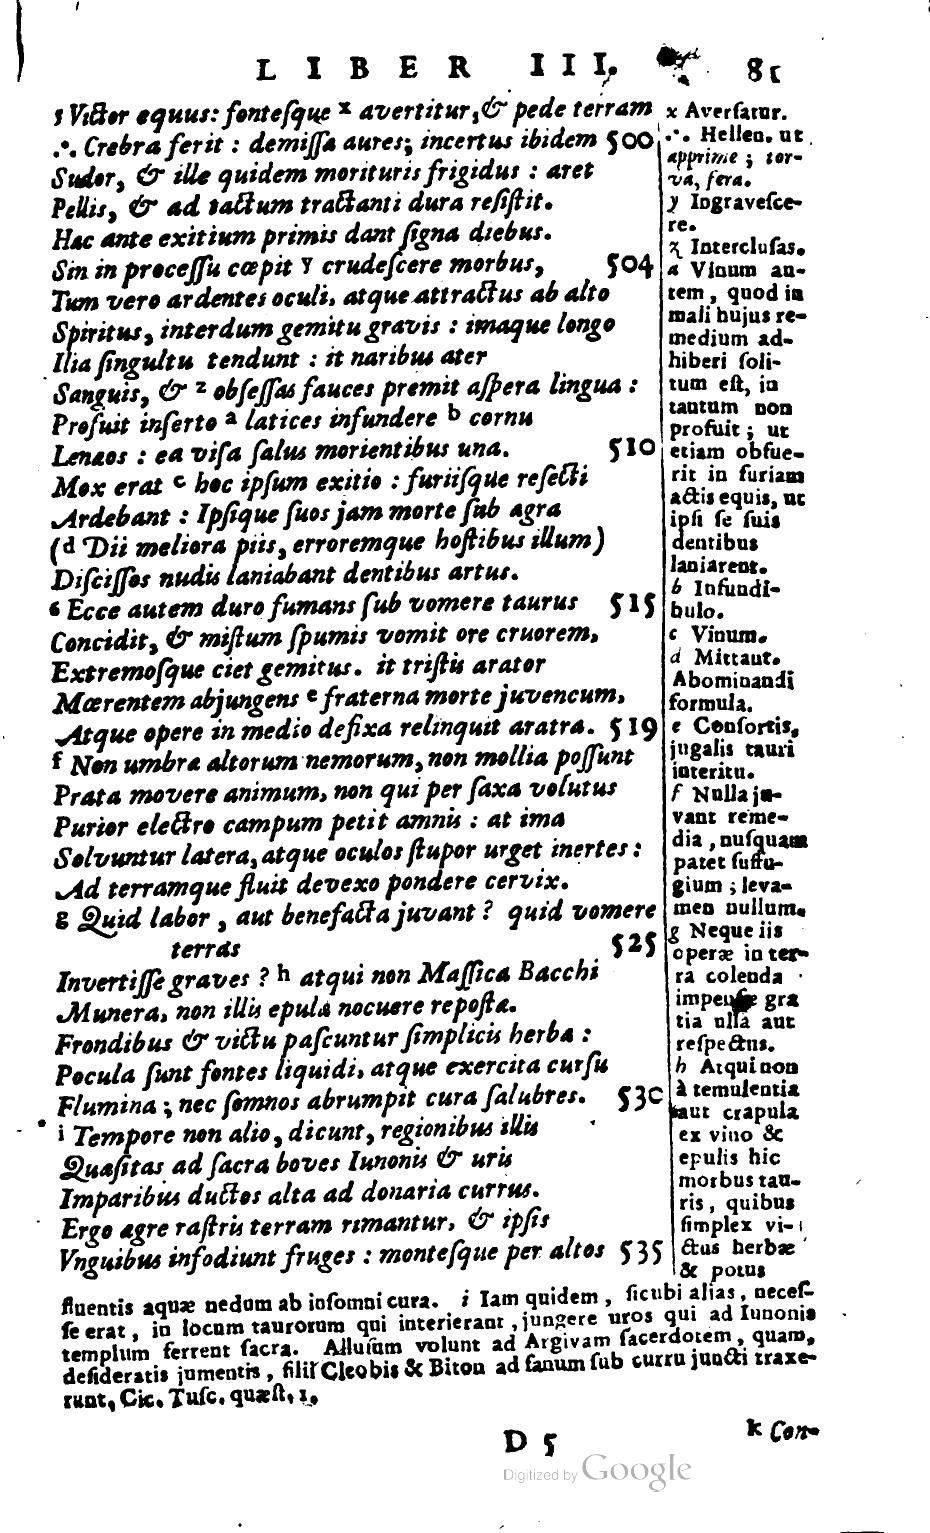 LIBER III. 81
5 Victor equus: fontesque x avertitur, & pede terram
∴ Crebra ferit : demissa aures; incertus ibidem 500
Sudor, & ille quidem morituris frigidus : aret
Pellis, & ad tactum tractanti dura resistit.
Hac ante exitium primis dant signa diebus.
Sin in processu cœpit y crudescere morbus, 504
Tum vero ardentes oculi, atque attractus ab alto
Spiritus, interdum gemitu gravis : imaque longo
Ilia singultu tendunt : it naribus ater
Sanguis, & z obsessas fauces premit aspera lingua :
Profuit inserto a latices infundere b cornu
Lenaos : ea visa salus morientibus una. 510
Mox erat c hoc ipsum exitio : furiisque refecti
Ardebant : Ipsique suos jam morte sub agra
(d Dii meliora piis, erroremque hostibus illum)
Discissos nudis laniabant dentibus artus.
6 Ecce autem duro fumans sub vomere taurus 515
Concidit, & mistum spumis vomit ore cruorem,
Extremosque ciet gemitus. it tristis arator
Mœrentem abjungens e fraterna morte juvencum,
Atque opere in medio defixa relinquit aratra. 519
f Non umbra altorum nemorum, non mollia possunt
Prata movere animum, non qui per saxa volutus
Purior electro campum petit amnis : at ima
Solvuntur latera, atque oculos stupor urget inertes :
Ad terramque fluit devexo pondere cervix.
g Quid labor, aut benefacta juvant ? quid vomere
terras 525
Invertisse graves ? h atqui non Massica Bacchi
Munera, non illis epula nocuere reposta.
Frondibus & victu pascuntur simplicis herba :
Pocula sunt fontes liquidi, atque exercita cursu
Flumina ; nec somnos abrumpit cura salubres. 530
i Tempore non alio, dicunt, regionibus illis
Quasitas ad sacra boves Iunonis & uris
Imparibus ductos alta ad donaria currus.
Ergo agre rastris terram rimantur, & ipsis
Vnguibus infodiunt fruges : montesque per altos 535
x Aversatur.
∴ Hellen. ut
apprime ; tor-
va, fera.
y Ingravesce-
re.
z Interclusas.
a Vinum au-
tem, quod in
mali hujus re-
medium ad-
hiberi soli-
tum est, in
tantum non
profuit ; ut
etiam obfue-
rit in furiam
actis equis, ut
ipsi se suis
dentibus
laniarent.
b Infundi-
bulo.
c Vinum.
d Mittant.
Abominandi
formula.
e Consortis,
jugalis tauri
interitu.
f Nulla ju-
vant reme-
dia, nusquam
patet suffu-
gium ; leva-
men nullum.
g Neque iis
operæ in ter-
ra colenda
impensæ gra
tia ulla aut
respectus.
h Atqui non
à temulentia
aut crapula
ex vino &
epulis hic
morbus tau-
ris, quibus
simplex vi-
ctus herbæ
& potus
fluentis aquæ nedum ab insomni cura. i Iam quidem, sicubi alias, neces-
se erat, in locum taurorum qui interierant, jungere uros qui ad Iunonis
templum ferrent sacra. Allusum volunt ad Argivam sacerdotem, quam,
desideratis jumentis, filii Cleobis & Biton ad fanum sub curru juncti traxe-
runt, Cic. Tusc. quæst. 1.
D 5 k Con-
Digitized by Google